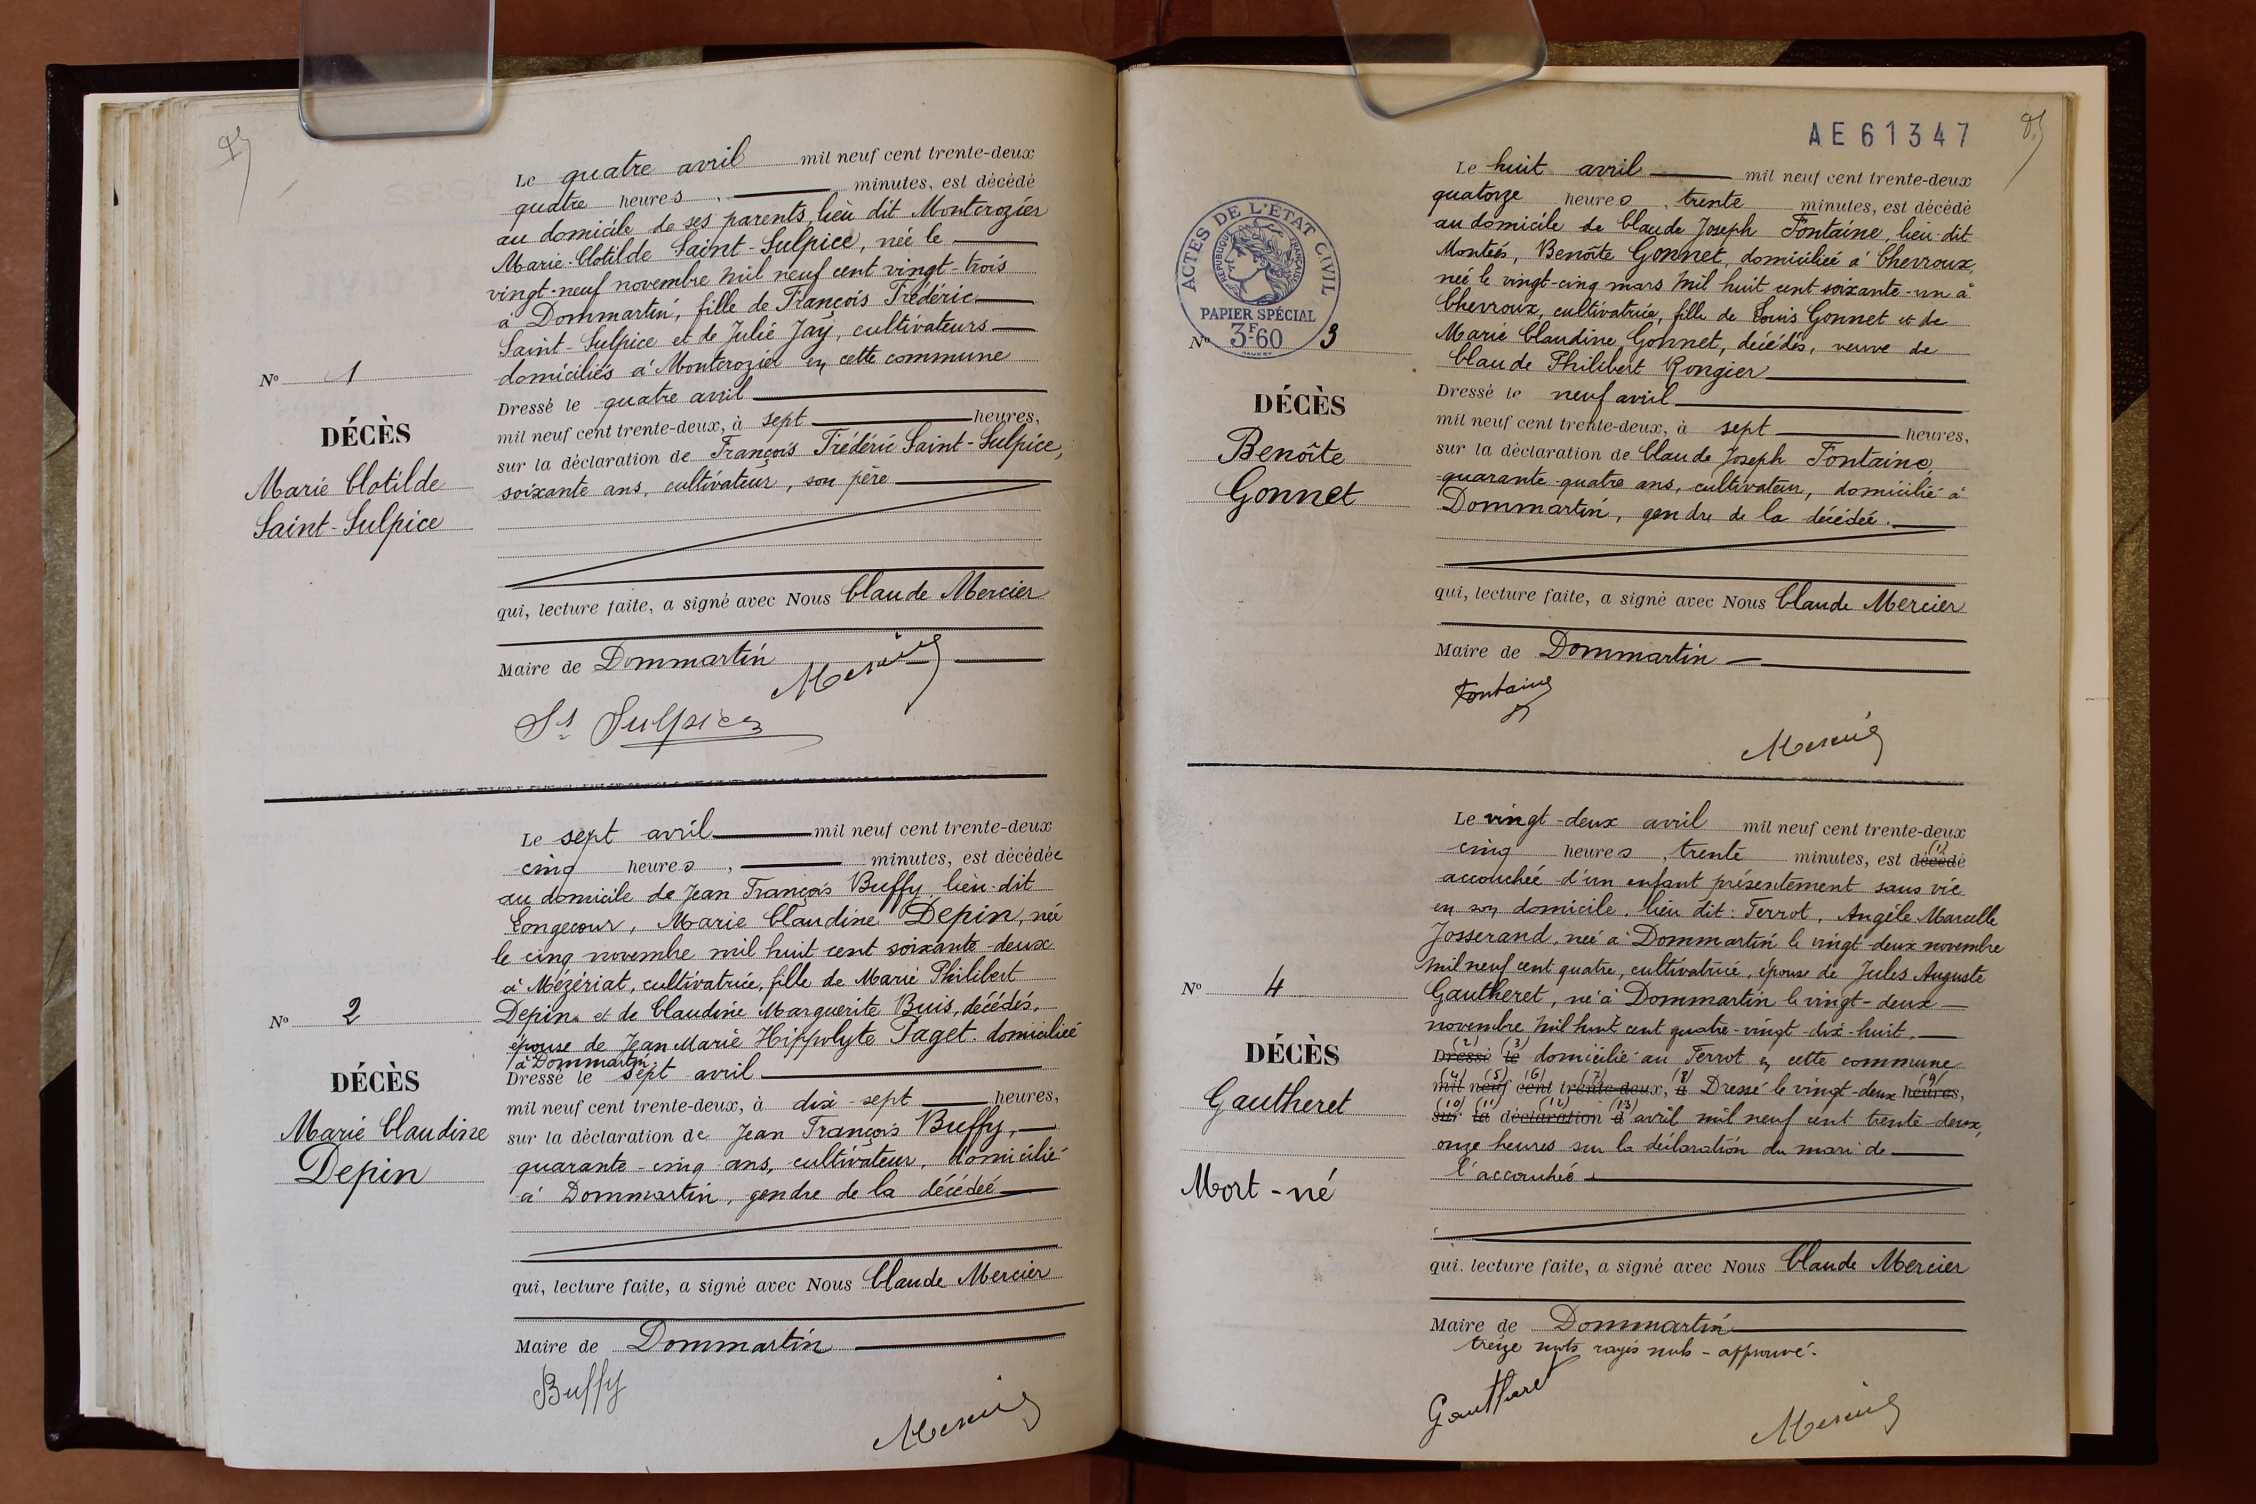 Le quatre avril mil neuf cent trente-deux
quatre heures, minutes, est décédé
au domicile de ses parents, lieu dit Montcrozier
Marie-Clotilde Saint-Sulpice, née le
vingt-neuf novembre mil neuf cent vingt-trois
à Dommartin, fille de François Frédéric
Saint-Sulpice et de Julie Jay, cultivateurs
domiciliés à Montcrozier en cette commune
Dressé le quatre avril
mil neuf cent trente-deux, à sept heures,
sur la déclaration de François Frédéric Saint-Sulpice,
soixante ans, cultivateur, son père
qui, lecture faite, a signé avec Nous Claude Mercier
Maire de Dommartin
Mercier
St Sulpice
N° 1
DÉCÈS
Marie Clotilde
Saint-Sulpice
Le sept avril mil neuf cent trente-deux
cinq heures, minutes, est décédée
au domicile de Jean François Buffy, lieu-dit
Longecour, Marie Claudine Depin, née
le cinq novembre mil huit cent soixante-deux
à Mézériat, cultivatrice, fille de Marie Philibert
Depin et de Claudine Marguerite Buis, décédés,
épouse de Jean Marie Hippolyte Paget. domiciliée
à Dommartin.
Dressé le sept avril
mil neuf cent trente-deux, à dix-sept heures,
sur la déclaration de Jean François Buffy,
quarante-cinq ans, cultivateur, domicilié
à Dommartin, gendre de la décédée
qui, lecture faite, a signé avec Nous Claude Mercier
Maire de Dommartin
Buffy
Mercier
N° 2
DÉCÈS
Marie Claudine
Depin
AE61347
ACTES DE L'ÉTAT CIVIL
RÉPUBLIQUE FRANÇAISE
PAPIER SPÉCIAL
3F60
N° 3
DÉCÈS
Benoîte
Gonnet
Le huit avril mil neuf cent trente-deux
quatorze heures, trente minutes, est décédé
au domicile de Claude Joseph Fontaine, lieu-dit
Montées, Benoîte Gonnet, domiciliée à Chevroux,
née le vingt-cinq mars mil huit cent soixante-un à
Chevroux, cultivatrice, fille de Louis Gonnet et de
Marie Claudine Gonnet, décédés, veuve de
Claude Philibert Rongier
Dressé le neuf avril
mil neuf cent trente-deux, à sept heures,
sur la déclaration de Claude Joseph Fontaine,
quarante-quatre ans, cultivateur, domicilié à
Dommartin, gendre de la décédée.
qui, lecture faite, a signé avec Nous Claude Mercier
Maire de Dommartin
Fontaine
Mercier
N° 4
DÉCÈS
Gautheret
Mort-né
Le vingt-deux avril mil neuf cent trente-deux
(1)
cinq heures, trente minutes, est décédé
accouchée d'un enfant présentement sans vie
en son domicile, lieu dit: Terrot, Angèle Marcelle
Josserand, née à Dommartin le vingt-deux novembre
mil neuf cent quatre, cultivatrice, épouse de Jules Auguste
Gautheret, né à Dommartin le vingt-deux
novembre mil huit cent quatre-vingt-dix-huit.
(2) (3)
Dressé le domicilié au Terrot en cette commune
(4) (5) (6) (7) (8) (9)
mil neuf cent trente-deux, à Dressé le vingt-deux heures,
(10) (11) (12) (13)
sur la déclaration d avril mil neuf cent trente-deux,
onze heures sur la déclaration du mari de
l'accouchée
qui, lecture faite, a signé avec Nous Claude Mercier
Maire de Dommartin
treize mots rayés nuls - approuvé.
Gautheret
Mercier